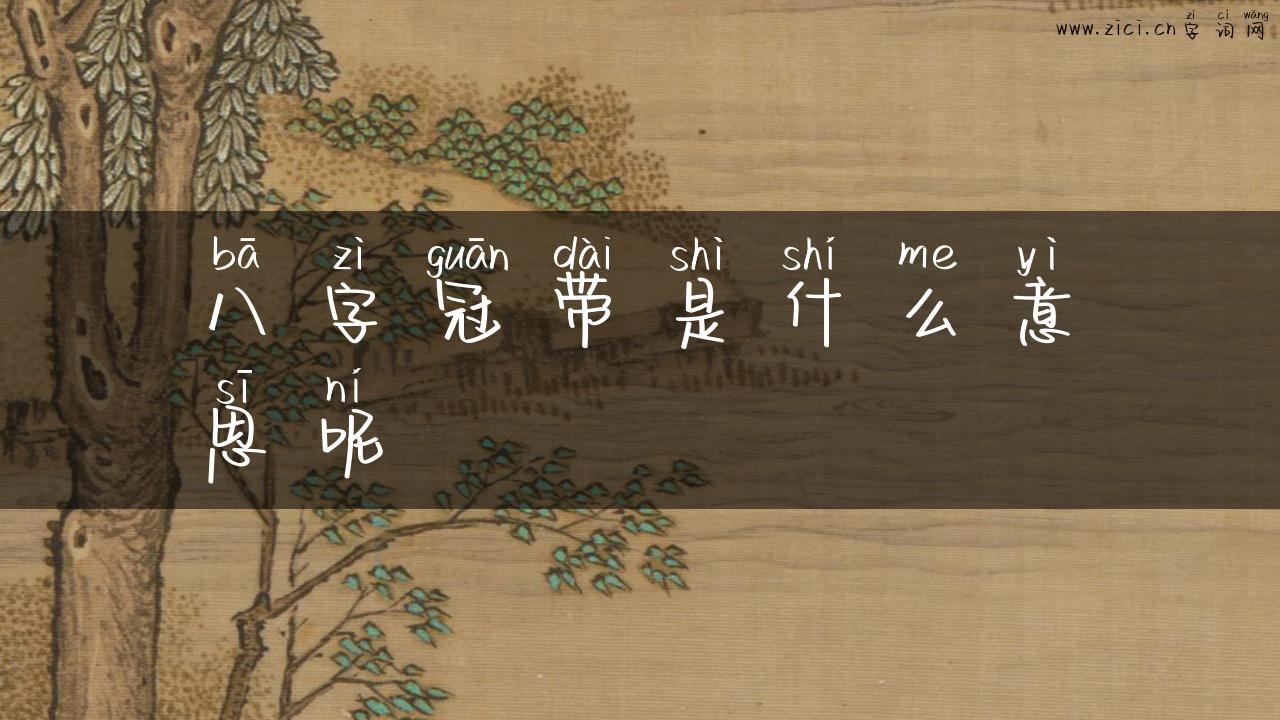 zì cí wǎng
www.zici.cn 字词网
bā zì guān dài shì shí me yì
八字冠带是什么意
sī ní
思呢